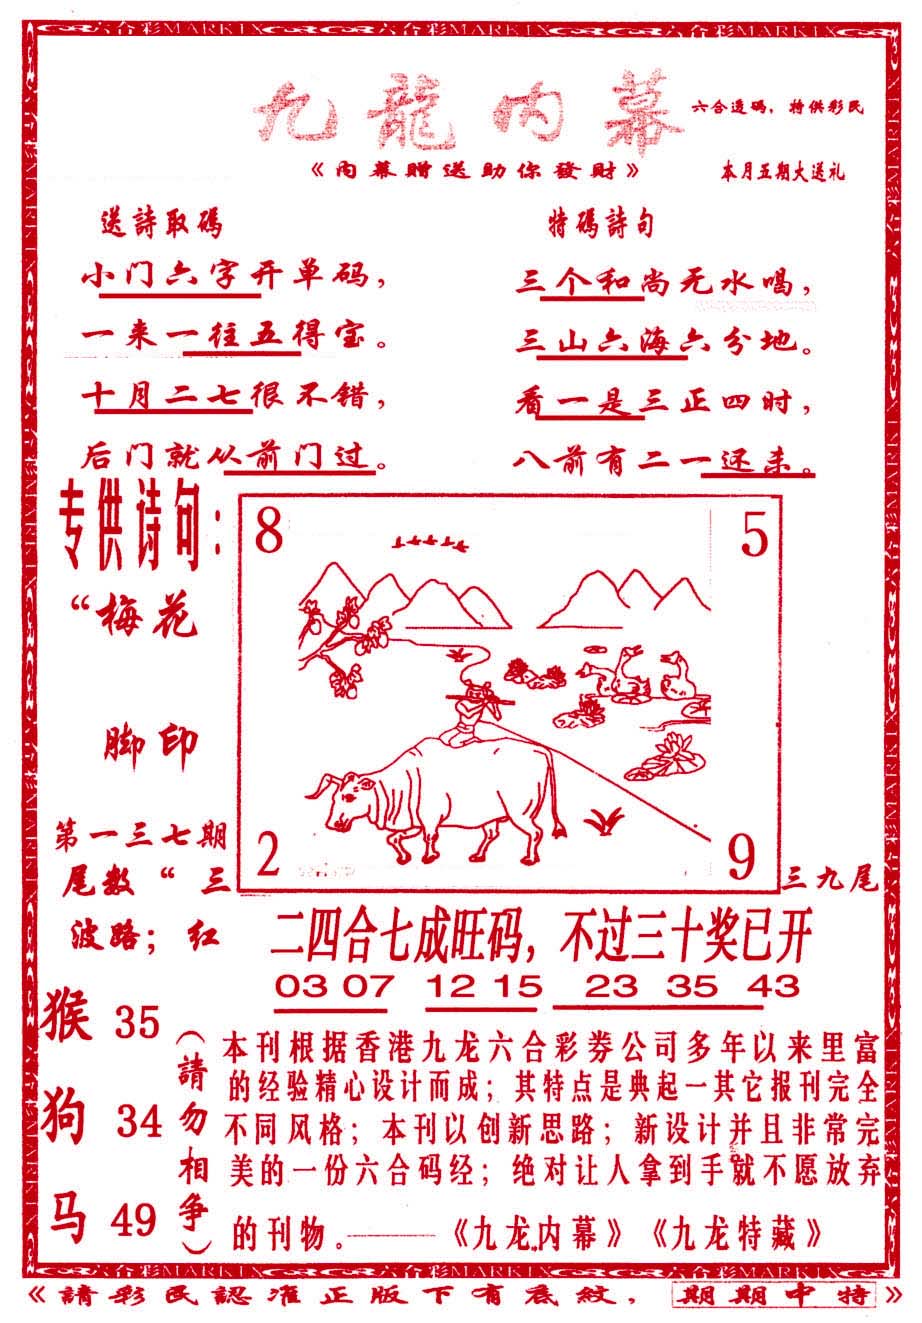 六合彩MARKIX 六合彩MARKIX 六合彩MARKIX
九龍内幕
六合透码，特供彩民
《内幕贈送助你發財》
本月五期大送礼
送詩取碼
小门六字开单码，
一来一往五得宝。
十月二七很不错，
后门就从前门过。
特碼詩句
三个和尚无水喝，
三山六海六分地。
看一是三正四时，
八前有二一还未。
专供诗句：
“梅花
脚印
8
5
2
9
第一三七期
尾数“三
三九尾
波路；红
二四合七成旺码，不过三十奖已开
03 07 12 15 23 35 43
猴 35
狗 34
马 49
（請勿相争）
本刊根据香港九龙六合彩券公司多年以来里富
的经验精心设计而成；其特点是典起一其它报刊完全
不同风格；本刊以创新思路；新设计并且非常完
美的一份六合码经；绝对让人拿到手就不愿放弃
的刊物。——《九龙内幕》《九龙特藏》
六合彩MARKIX 六合彩MARKIX 六合彩MARKIX
《請彩民認准正版下有底紋，期期中特》